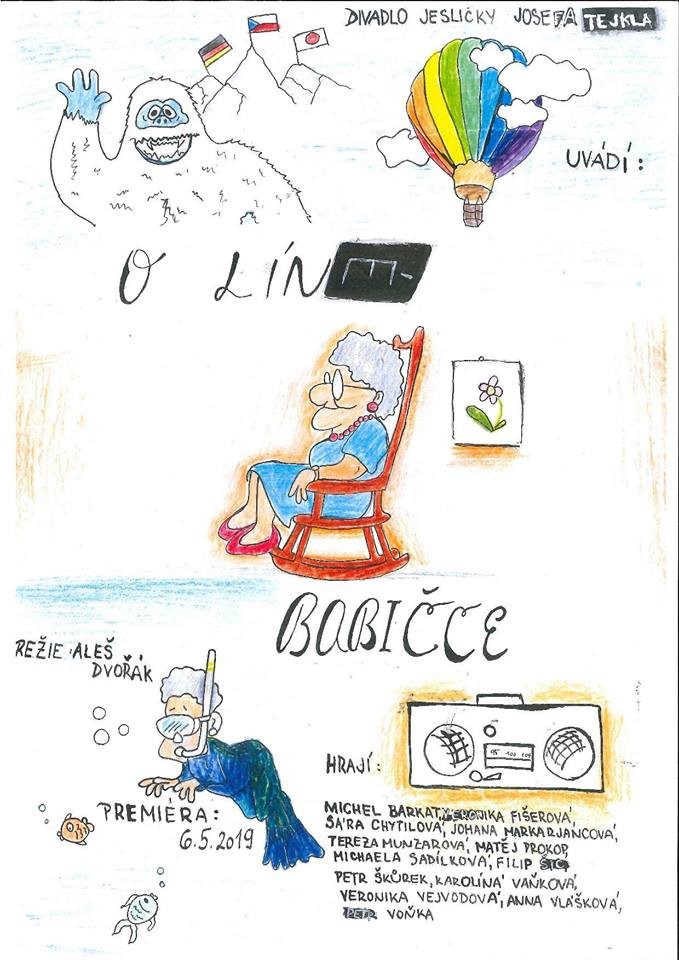 DIVADLO JESLIČKY JOSEFA TEJKLA
UVÁDÍ:
O LÍNÉ
BABIČCE
REŽIE: ALEŠ
DVOŘÁK
HRAJÍ:
95 100 105
PREMIÉRA:
6.5.2019
MICHEL BARKAT, VERONIKA FIŠEROVÁ,
SÁRA CHYTILOVÁ, JOHANA MARKARJANCOVÁ,
TEREZA MUNZAROVÁ, MATĚJ PROKOP,
MICHAELA SADÍLKOVÁ, FILIP
PETR ŠKŮREK, KAROLÍNA VAŇKOVÁ,
VERONIKA VEJVODOVÁ, ANNA VLÁŠKOVÁ,
PETR VOŇKA